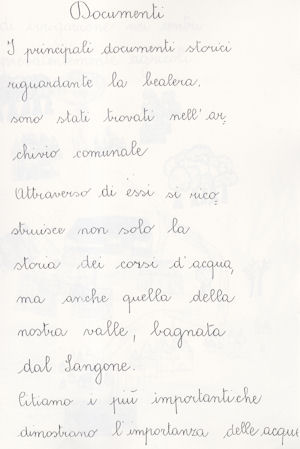 Documenti
I principali documenti storici
riguardante la bealera.
sono stati trovati nell'ar
chivio comunale
Attraverso di essi si rico
struisce non solo la
storia dei corsi d'acqua,
ma anche quella della
nostra valle, bagnata
dal Sangone.
Citiamo i più importanti che
dimostrano l'importanza delle acque